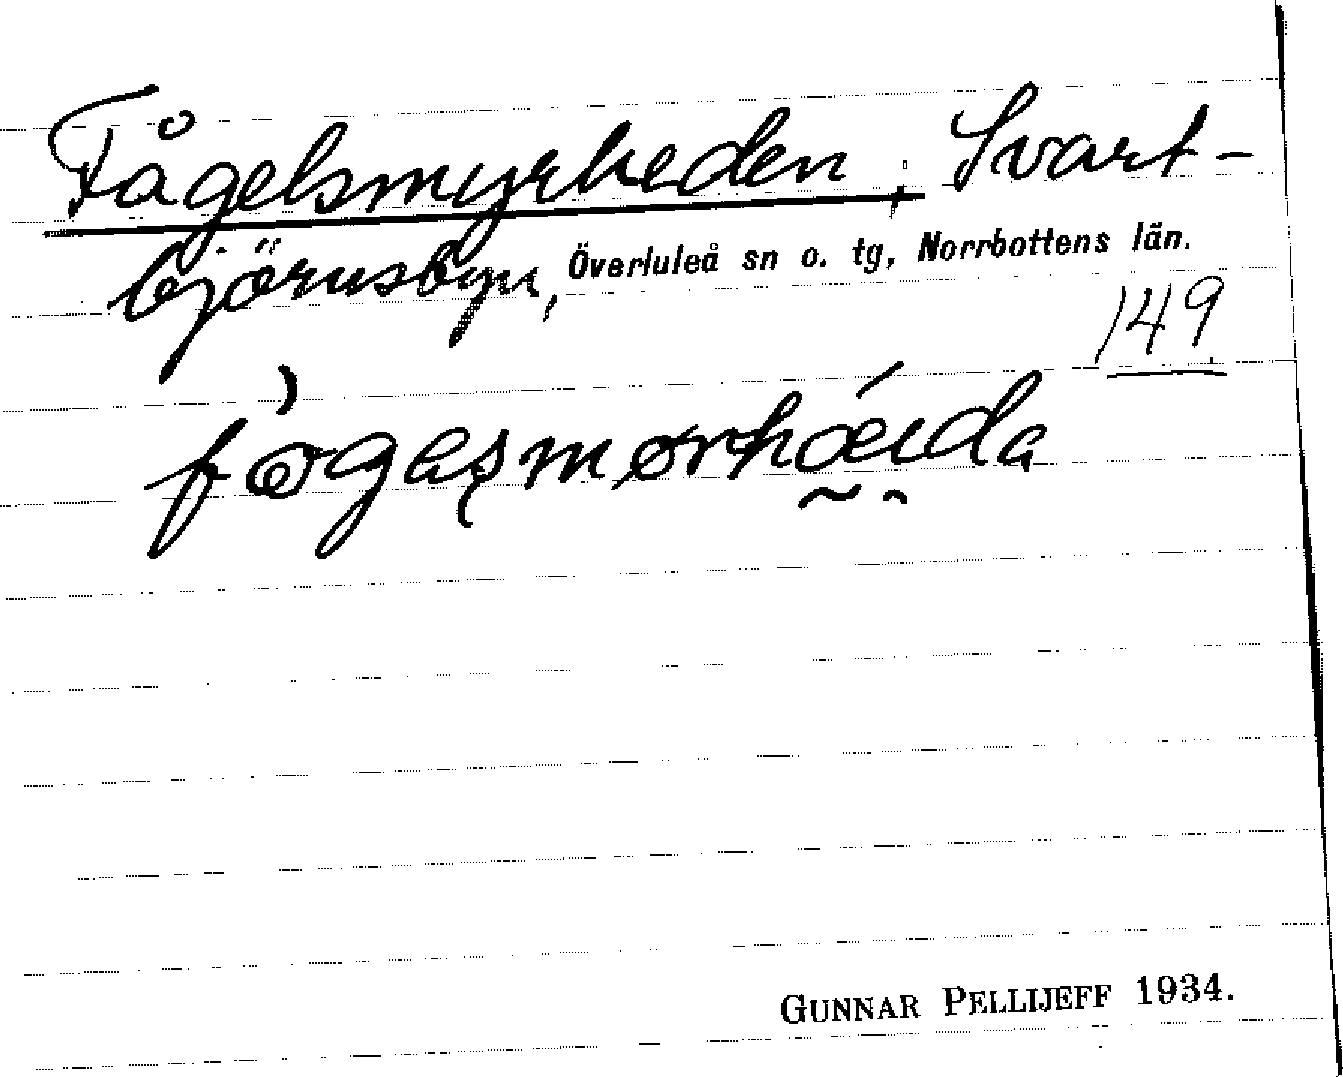 Fågelsmyrheden, Svart-
björnsbyn, Överluleå sn o. tg, Norrbottens län.
149
fògaʂmørhǽıda
GUNNAR PELLIJEFF 1934.